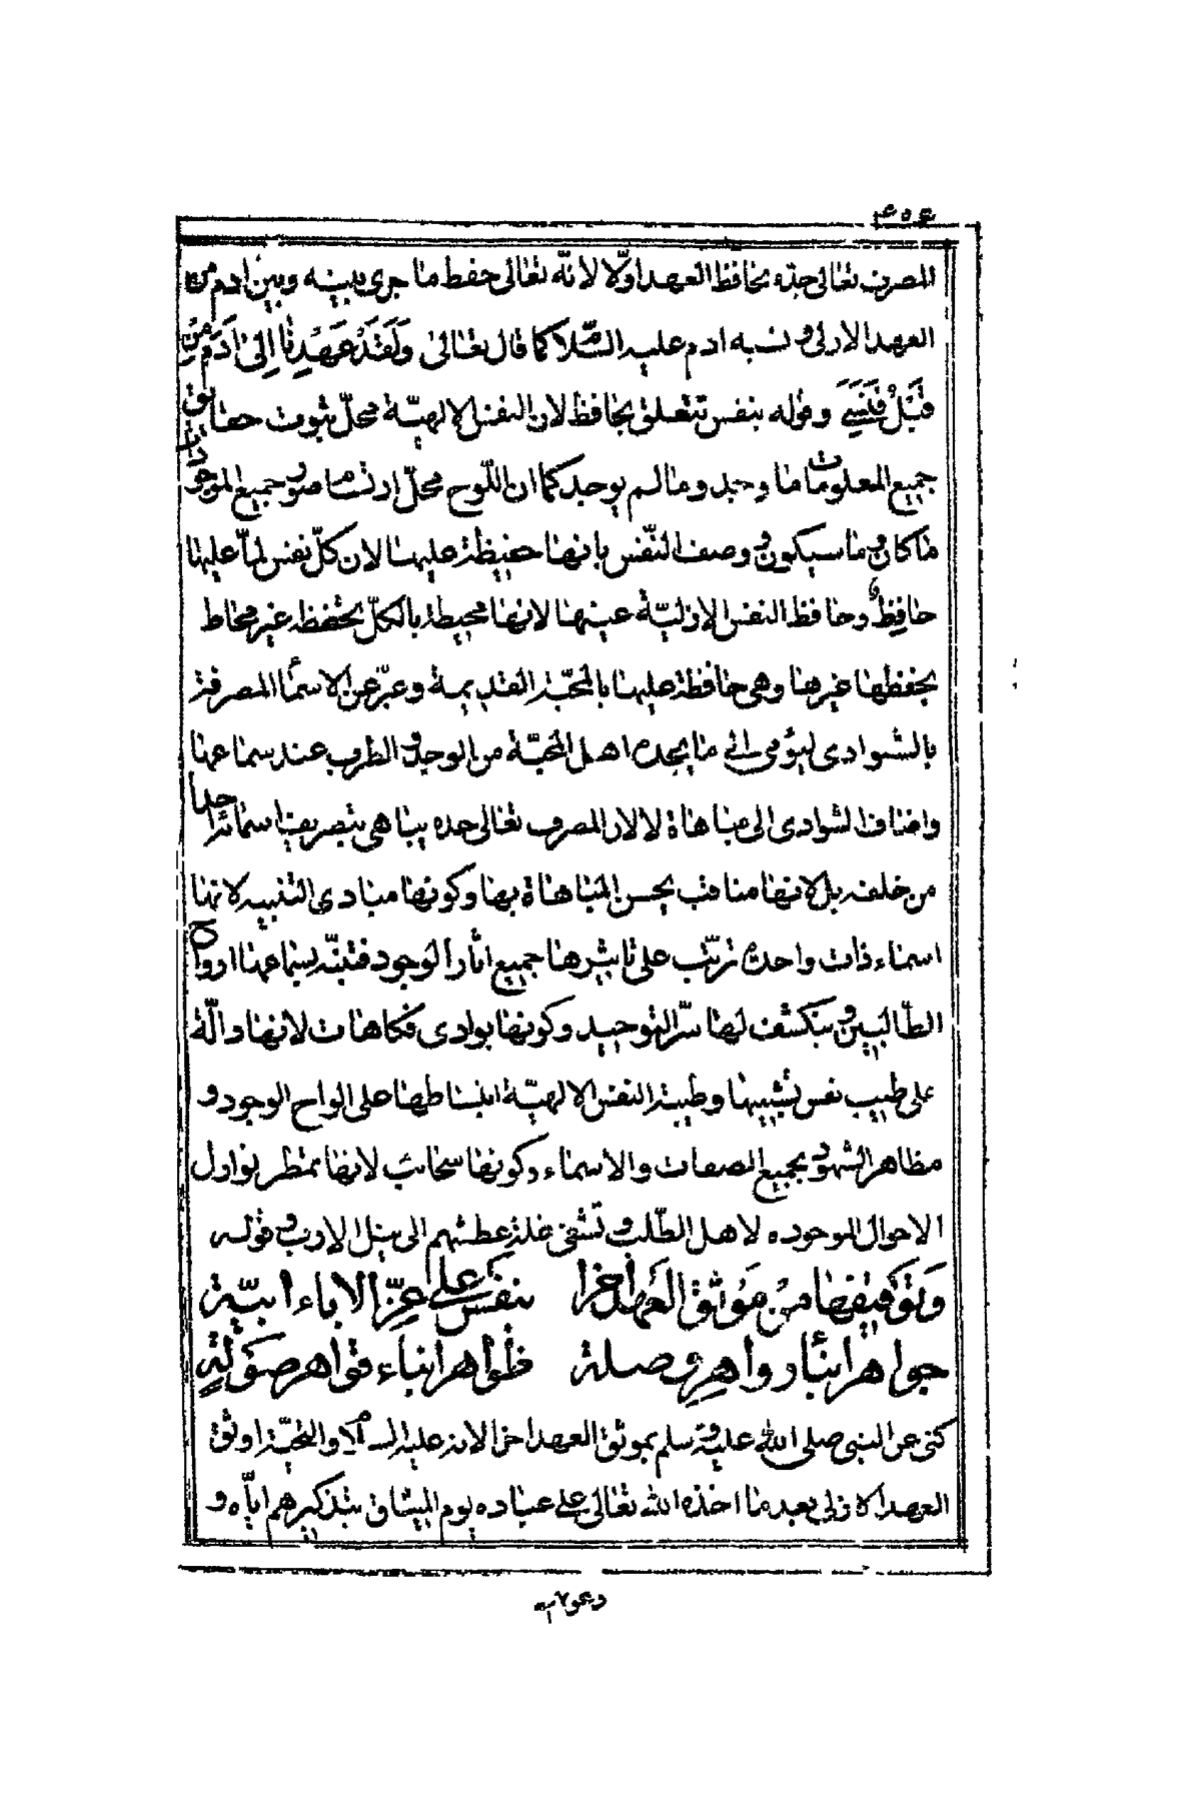 ٤٥٤
المصرف تعالى جده بحافظ العهد اولا لانه تعالى حفظ ما جرى بينه وبين ادم من
العهد الازلي ونسيه ادم عليه السّلام كما قال تعالى وَلَقَدْ عَهِدْنَا اِلىٰ اٰدَمَ مِنْ
قَبْلُ فَنَسِيَ وقوله بنفس تتعلق بحافظ لان النفس الالهيّة محلّ ثبوت حقايق
جميع المعلومات ما وجد وما لم يوجد كما ان اللّوح محلّ ارتسام صور جميع الموجودات
ما كان وما سيكون ووصف النّفس بانها حفيظة عليها لان كلّ نفس لمّا عليها
حافِظٌ وحافظ النفس الازليّة عينها لانها محيطة بالكلّ بحفظه غير محاط
بحفظها غيرها وهى حافظة عليها بالمحبّة القديمة وعبّر عن الاسماء المصرفة
بالشوادى ليؤمى الى ما يجده اهل المحبّة من الوجد والطرب عند سماعها
واضاف الشوادى الى مباهاة لا لان المصرف تعالى جده يباهى بتصريف اسمائه احدا
من خلقه بل لانها مناقب يحسن المباهاة بها وكونها مبادى التنبيه لانها
اسماء ذات واحدة ترتّب على تاثيرها جميع اثار الوجود فتنبّه بسماعها ارواح
الطّالبين وينكشف لها سرّ التوحيد وكونها بوادى فكاهات لانها دالّة
على طيب نفس تثبيها وطيبة النفس الالهيّة انبساطها على الواح الوجود و
مظاهر الشهود بجميع الصفات والاسماء وكونها سحائب لانها تمطر نوازل
الاحوال الموجوده لاهل الطّلب وتشفى غلة عطشهم الى نيل الارب وقوله
وَتَوْقِيفِهَا مِنْ مَوْثِقِ الْعَهْدِ اٰخِرًا بنفس على عِزِّ الاباء ابيّة
جواهر انباء زواهر وصلة ظواهر ابناء قواهر صولةٍ
كنى عن النبى صلى الله عليه وسلم بموثق العهد اخرا لانه عليه السلام والتحيّة اوثق
العهد الازلي بعد ما اخذه الله تعالى على عباده يوم الميثاق بتذكيرهم ايّاه و